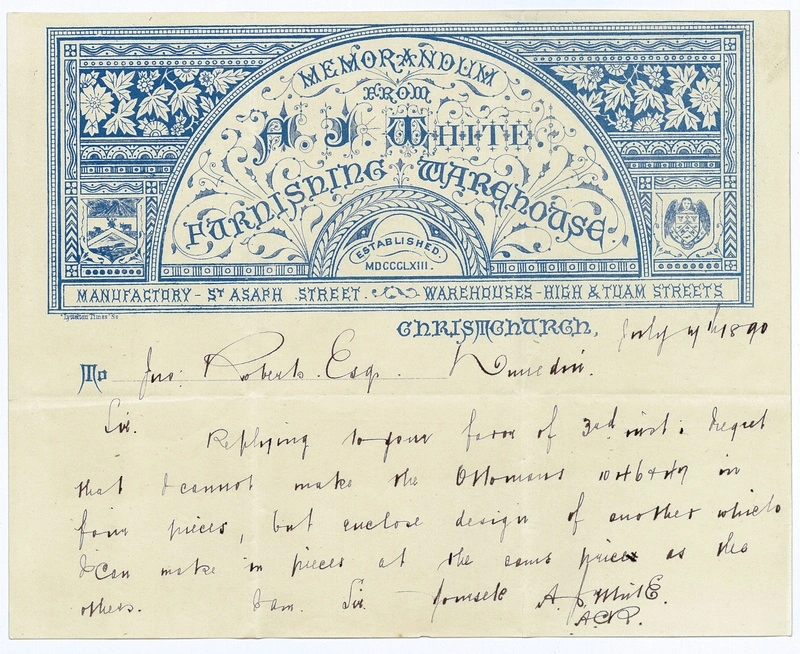 MEMORANDUM
FROM
A. J. WHITE.
FURNISHING WAREHOUSE.
ESTABLISHED.
MDCCCLXIII.
MANUFACTORY - ST ASAPH STREET. WAREHOUSES - HIGH & TUAM STREETS
"Lyttelton Times" Co
CHRISTCHURCH, July 1890
To Jno: Roberts. Esq. Dunedin.
Sir. Replying to your favor of 3rd inst: Regret
that I cannot make the Ottomans in
four pieces, but enclose design of another which
I can make in pieces at the same price as the
others. I am. Sir. A. J. White.